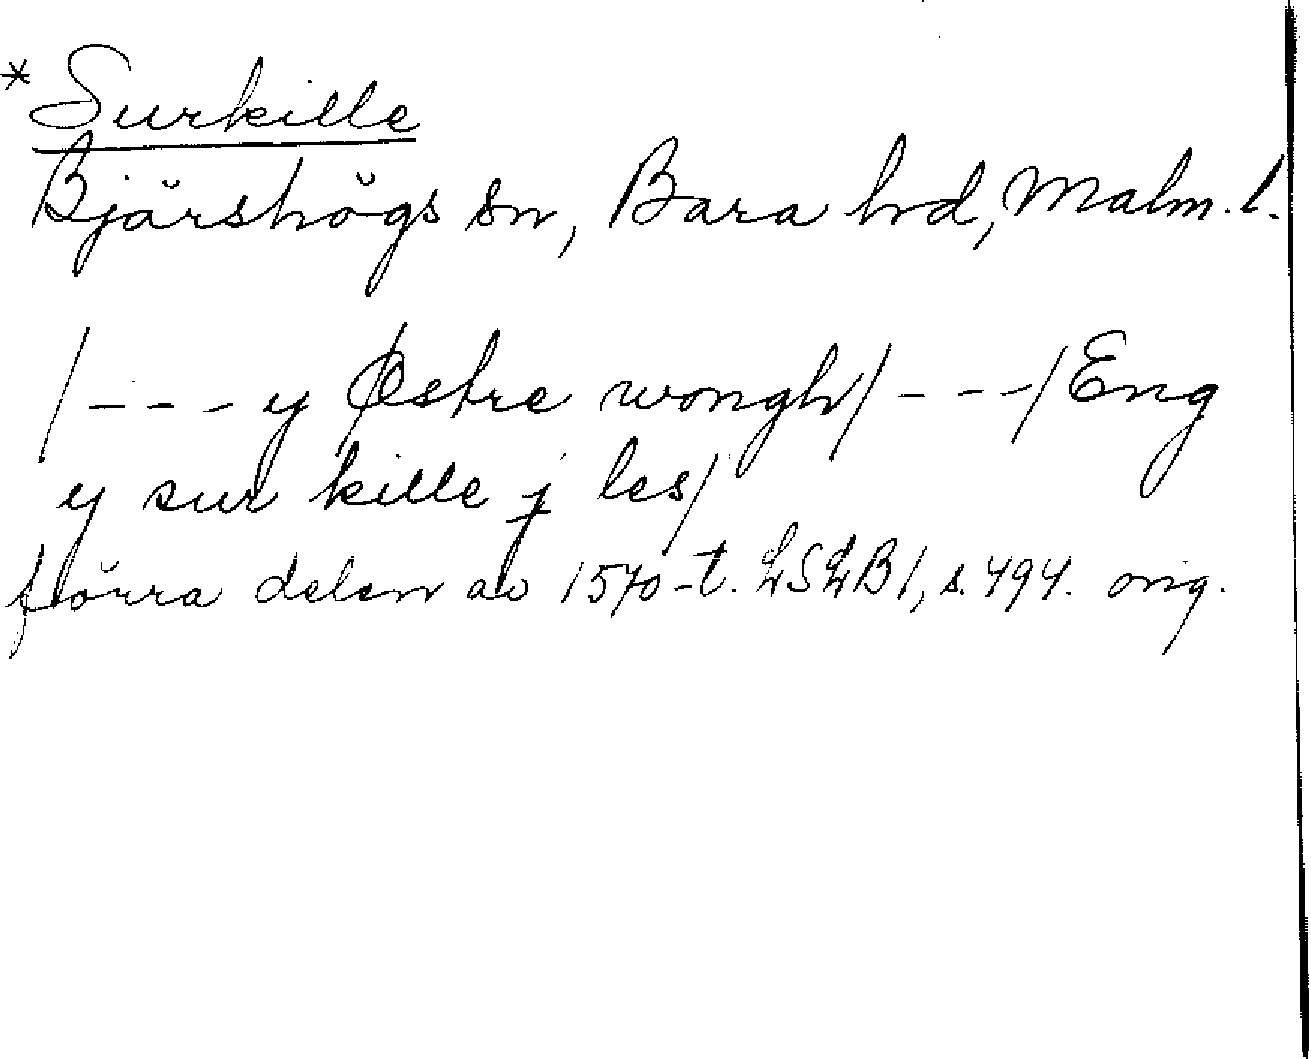 * Surkille
Bjärshögs sn, Bara hd, Malm. l.
/--- y Østre wongh/ ---/ Eng
y sur kille j les/
förra delen av 1570-t. LSLB 1, s. 494. orig.